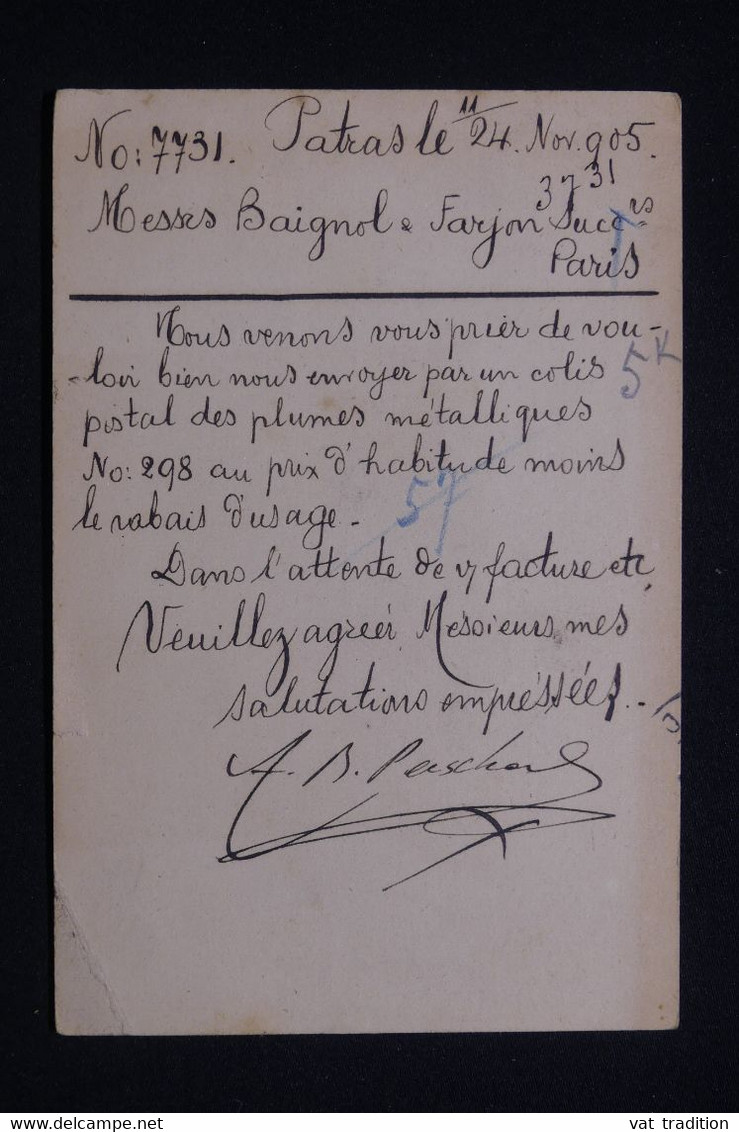 No: 7731. Patras le 11/24. Nov. 905.
3731
Messrs Baignol & Farjon Succrs
Paris
Nous venons vous prier de vou-
-loir bien nous envoyer par un colis
5K
postal des plumes métalliques
No: 298 au prix d'habitude moins
57
le rabais d'usage.-
Dans l'attente de v/ facture etc.
Veuillez agréér, Messieurs, mes
salutations empréssées.-
A. B.
delcampe.net
vat tradition